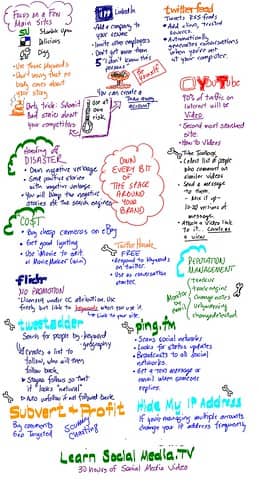 Focus on a Few
Main Sites
Stumble Upon
Delicious
Digg
- Use those keywords
- Don't worry that no
body cares about your
story.
Dirty trick: Submit
bad stories about
your competitors
Use at
own
risk.
LinkedIn
- Add a company to
your resume
- Invite other employees
- Don't get more than
5 "I don't know this
person"
You can create a
fake
account
twitterfeed
Tweets RSS feeds
Add client, trusted
sources.
Automatically
generates conversations
when you're not
at your computer.
YouTube
90% of traffic on
internet will be
Video
- Second most searched
site.
- How to Videos
DISASTER
- Own negative verbage
- Send positive stories
with negative verbage
- You will bump the negative
stories off the search engines
OWN
EVERY BIT
OF
THE SPACE
AROUND
YOUR
BRAND
Tube Toolbox
- Collect list of people
who comment on
similar videos
- Send a message
to them.
- Mix it up -
10-20 versions of
message.
- Attach a video link
to it. Counts as
a view
COST
- Buy cheap cameras on eBay
- Get good lighting
- Use iMovie to edit
or MovieMaker (win)
Twitter Hawk
FREE
- Respond to keywords
on twitter.
- Use as conversation
starter.
REPUTATION
MANAGEMENT
Monitor
changedetection
flickr
NO PROMOTION
- Licensed under CC attribution. Use
freely but link to keywords when you use it.
Link to your site.
tweetadder
Search for people by - keyword
- geography
Creates a list to
follow, who will then
follow back.
Stagger follows so that
it looks natural
Auto unfollow if not followed back
ping.fm
- Scans social networks
- Looks for status updates
- Broadcasts to all social
networks.
- Get a text message or
email when someone
replies
Subvert & Profit
Buy comments
Geo Targeted
Scummy
Cheating
Hide My IP Address
If you're managing multiple accounts
change your IP address frequently
Learn Social Media.TV
30 hours of Social Media Video